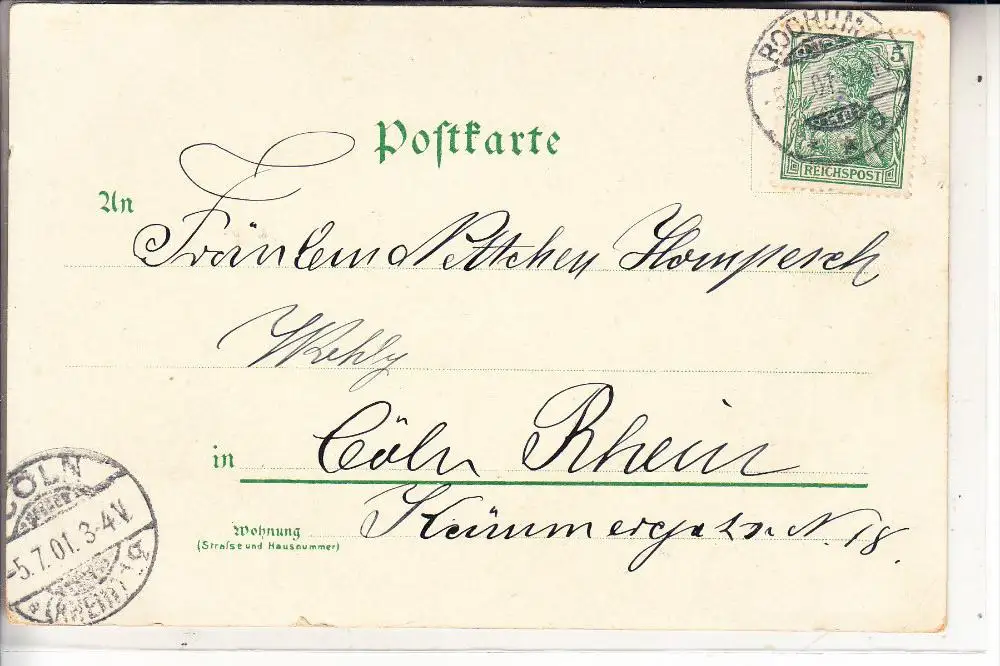 BOCHUM
5
01
REICHSPOST
Postkarte
An
Fräulein Nettchen Hompesch
in Cöln Rhein
Wohnung
(Straſse und Hausnummer)
Kämmergasse N. 18.
CÖLN
5.7.01. 3-4V.
(RHEIN)